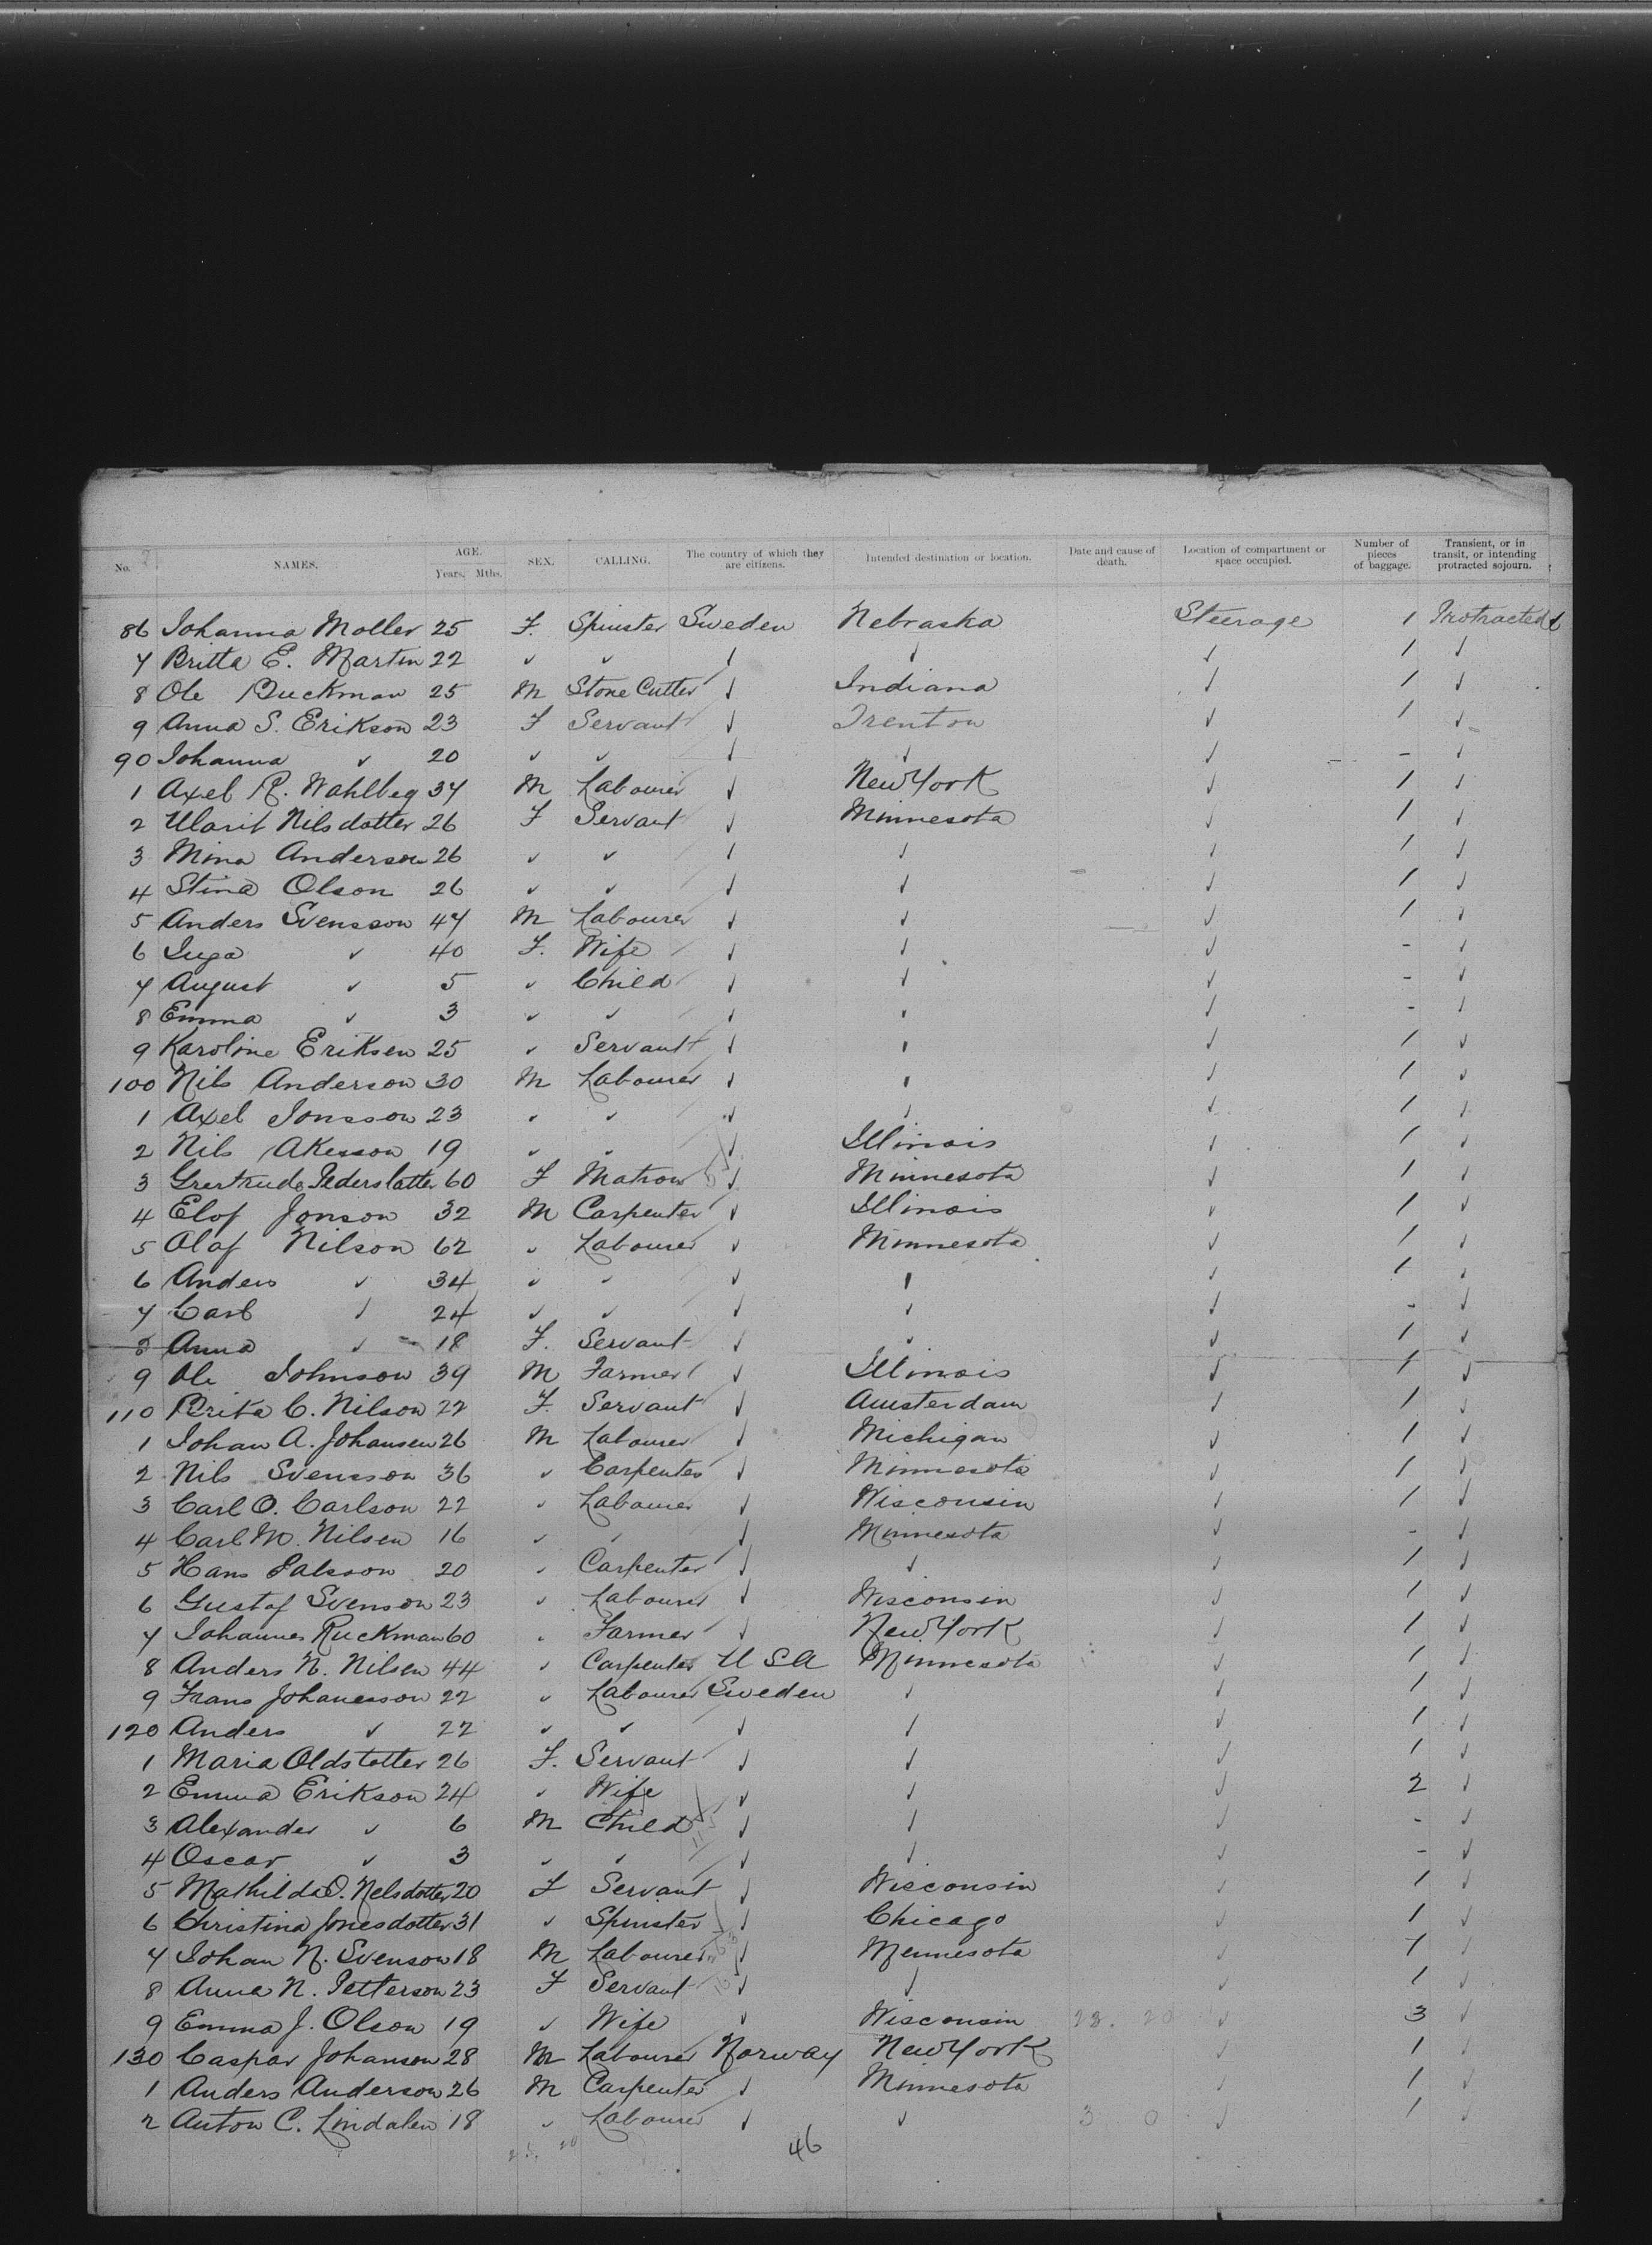 No. NAMES. AGE. Years. Mths. SEX. CALLING. The country of which they are citizens. Intended destination or location. Date and cause of death. Location of compartment or space occupied. Number of pieces of baggage. Transient, or in transit, or intending protracted sojourn.
86 Johanna Moller 25 F. Spinster Sweden Nebraska Steerage 1 Protracted
7 Britta E. Martin 22 ✓ ✓ ✓ ✓ ✓ 1 ✓
8 Ole Buckman 25 M Stone Cutter ✓ Indiana ✓ 1 ✓
9 Anna S. Erikson 23 F Servant ✓ Trenton ✓ 1 ✓
90 Johanna ✓ 20 ✓ ✓ ✓ ✓ ✓ - ✓
1 Axel R. Wahlbeg 34 M Labourer ✓ New York ✓ 1 ✓
2 Nilsdotter 26 F Servant ✓ Minnesota ✓ 1 ✓
3 Mina Anderson 26 ✓ ✓ ✓ ✓ ✓ 1 ✓
4 Stina Olson 26 ✓ ✓ ✓ ✓ ✓ 1 ✓
5 Anders Svensson 47 M Labourer ✓ ✓ ✓ 1 ✓
6 Inga ✓ 40 F. Wife ✓ ✓ ✓ - ✓
7 August ✓ 5 ✓ Child ✓ ✓ ✓ - ✓
8 Emma ✓ 3 ✓ ✓ ✓ ✓ ✓ - ✓
9 Karoline Eriksen 25 ✓ Servant ✓ ✓ ✓ 1 ✓
100 Nils Anderson 30 M Labourer ✓ ✓ ✓ 1 ✓
1 Axel Jonsson 23 ✓ ✓ ✓ ✓ ✓ 1 ✓
2 Nils Akesson 19 ✓ ✓ ✓ Illinois ✓ 1 ✓
3 Grertrude Pederslatter 60 F Matron ✓ Minnesota ✓ 1 ✓
4 Elof Jonson 32 M Carpenter ✓ Illinois ✓ 1 ✓
5 Olaf Nilson 62 ✓ Labourer ✓ Minnesota ✓ 1 ✓
6 Anders ✓ 34 ✓ ✓ ✓ ✓ ✓ 1 ✓
7 Carl ✓ 24 ✓ ✓ ✓ ✓ ✓ - ✓
8 Anna ✓ 18 F. Servant ✓ ✓ ✓ 1 ✓
9 Ole Johnson 39 M Farmer ✓ Illinois ✓ 1 ✓
110 Brita C. Nilson 22 F. Servant ✓ Amsterdam ✓ 1 ✓
1 Johan A. Johansen 26 M Labourer ✓ Michigan ✓ 1 ✓
2 Nils Svensson 36 ✓ Carpenter ✓ Minnesota ✓ 1 ✓
3 Carl O. Carlson 22 ✓ Labourer ✓ Wisconsin ✓ 1 ✓
4 Carl M. Nilsen 16 ✓ ✓ ✓ Minnesota ✓ - ✓
5 Hans Palsson 20 ✓ Carpenter ✓ ✓ ✓ 1 ✓
6 Gustaf Svenson 23 ✓ Labourer ✓ Wisconsin ✓ 1 ✓
7 Johannes Ruckman 60 ✓ Farmer ✓ New York ✓ 1 ✓
8 Anders N. Nilsen 44 ✓ Carpenter U S A Minnesota ✓ 1 ✓
9 Frans Johanesson 22 ✓ Labourer Sweden ✓ ✓ 1 ✓
120 Anders ✓ 22 ✓ ✓ ✓ ✓ ✓ 1 ✓
1 Maria Oldstotter 26 F. Servant ✓ ✓ ✓ 1 ✓
2 Emma Erikson 24 ✓ Wife ✓ ✓ ✓ 2 ✓
3 Alexander ✓ 6 M Child ✓ ✓ ✓ - ✓
4 Oscar ✓ 3 ✓ ✓ ✓ ✓ ✓ - ✓
5 Mathilda O. Nelsdotter 20 F Servant ✓ Wisconsin ✓ 1 ✓
6 Christina Jonesdotter 31 ✓ Spinster ✓ Chicago ✓ 1 ✓
7 Johan N. Svenson 18 M Labourer ✓ Mennesota ✓ 1 ✓
8 Anna N. Petterson 23 F Servant ✓ ✓ ✓ 1 ✓
9 Emma J. Olson 19 ✓ Wife ✓ Wisconsin 28. 20 ✓ 3 ✓
130 Caspar Johanson 28 M Labourer Norway New York ✓ 1 ✓
1 Anders Anderson 26 M Carpenter ✓ Minnesota ✓ 1 ✓
2 Anton C. Lindalen 18 ✓ Labourer ✓ ✓ 3 0 ✓ 1 ✓
46